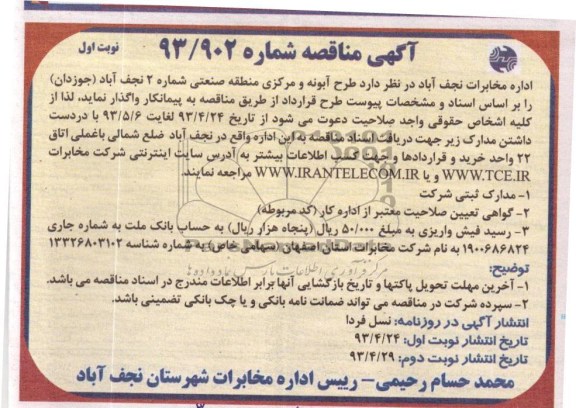 آگهی مناقصه شماره ۹۳/۹۰۲
نوبت اول
اداره مخابرات نجف آباد در نظر دارد طرح آبونه و مرکزی منطقه صنعتی شماره ۲ نجف آباد (جوزدان)
را بر اساس اسناد و مشخصات پیوست طرح قرارداد از طریق مناقصه به پیمانکار واگذار نماید، لذا از
کلیه اشخاص حقوقی واجد صلاحیت دعوت می شود از تاریخ ۹۳/۴/۲۴ لغایت ۹۳/۵/۶ با دردست
داشتن مدارک زیر جهت دریافت اسناد مناقصه به این اداره واقع در نجف آباد ضلع شمالی باغملی اتاق
۲۲ واحد خرید و قراردادها و جهت کسب اطلاعات بیشتر به آدرس سایت اینترنتی شرکت مخابرات
WWW.TCE.IR و یا WWW.IRANTELECOM.IR مراجعه نمایند.
۱- مدارک ثبتی شرکت
۲- گواهی تعیین صلاحیت معتبر از اداره کار (کد مربوطه)
۳- رسید فیش واریزی به مبلغ ۵۰/۰۰۰ ریال (پنجاه هزار ریال) به حساب بانک ملت به شماره جاری
۱۹۰۰۶۸۶۸۲۴ به نام شرکت مخابرات استان اصفهان (سهامی خاص) به شماره شناسه ۱۳۳۲۶۸۰۳۱۰۲
توضیح:
۱- آخرین مهلت تحویل پاکتها و تاریخ بازگشایی آنها برابر اطلاعات مندرج در اسناد مناقصه می باشد.
۲- سپرده شرکت در مناقصه می تواند ضمانت نامه بانکی و یا چک بانکی تضمینی باشد.
انتشار آگهی در روزنامه: نسل فردا
تاریخ انتشار نوبت اول: ۹۳/۴/۲۴
تاریخ انتشار نوبت دوم: ۹۳/۴/۲۹
محمد حسام رحیمی- رییس اداره مخابرات شهرستان نجف آباد